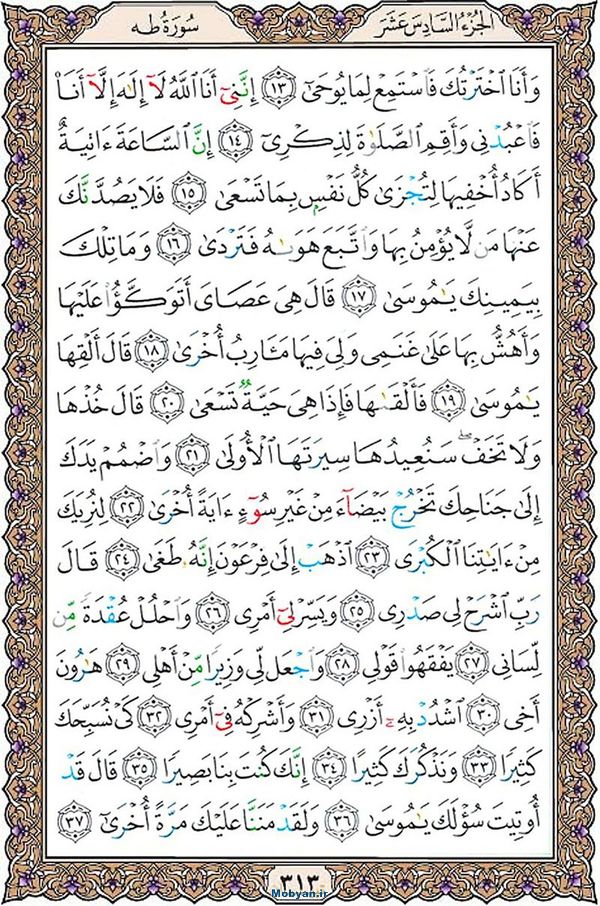 الجزء السادس عشر
سورة طه
وَأَنَا ٱخۡتَرۡتُكَ فَٱسۡتَمِعۡ لِمَا يُوحَىٰٓ ١٣ إِنَّنِيٓ أَنَا ٱللَّهُ لَآ إِلَٰهَ إِلَّآ أَنَا۠
فَٱعۡبُدۡنِي وَأَقِمِ ٱلصَّلَوٰةَ لِذِكۡرِيٓ ١٤ إِنَّ ٱلسَّاعَةَ ءَاتِيَةٌ
أَكَادُ أُخۡفِيهَا لِتُجۡزَىٰ كُلُّ نَفۡسِۭ بِمَا تَسۡعَىٰ ١٥ فَلَا يَصُدَّنَّكَ
عَنۡهَا مَن لَّا يُؤۡمِنُ بِهَا وَٱتَّبَعَ هَوَىٰهُ فَتَرۡدَىٰ ١٦ وَمَا تِلۡكَ
بِيَمِينِكَ يَٰمُوسَىٰ ١٧ قَالَ هِيَ عَصَايَ أَتَوَكَّؤُاْ عَلَيۡهَا
وَأَهُشُّ بِهَا عَلَىٰ غَنَمِي وَلِيَ فِيهَا مَـَٔارِبُ أُخۡرَىٰ ١٨ قَالَ أَلۡقِهَا
يَٰمُوسَىٰ ١٩ فَأَلۡقَىٰهَا فَإِذَا هِيَ حَيَّةٞ تَسۡعَىٰ ٢٠ قَالَ خُذۡهَا
وَلَا تَخَفۡۖ سَنُعِيدُهَا سِيرَتَهَا ٱلۡأُولَىٰ ٢١ وَٱضۡمُمۡ يَدَكَ
إِلَىٰ جَنَاحِكَ تَخۡرُجۡ بَيۡضَآءَ مِنۡ غَيۡرِ سُوٓءٍ ءَايَةً أُخۡرَىٰ ٢٢ لِنُرِيَكَ
مِنۡ ءَايَٰتِنَا ٱلۡكُبۡرَى ٢٣ ٱذۡهَبۡ إِلَىٰ فِرۡعَوۡنَ إِنَّهُۥ طَغَىٰ ٢٤ قَالَ
رَبِّ ٱشۡرَحۡ لِي صَدۡرِي ٢٥ وَيَسِّرۡ لِيٓ أَمۡرِي ٢٦ وَٱحۡلُلۡ عُقۡدَةٗ مِّن
لِّسَانِي ٢٧ يَفۡقَهُواْ قَوۡلِي ٢٨ وَٱجۡعَل لِّي وَزِيرٗا مِّنۡ أَهۡلِي ٢٩ هَٰرُونَ
أَخِي ٣٠ ٱشۡدُدۡ بِهِۦٓ أَزۡرِي ٣١ وَأَشۡرِكۡهُ فِيٓ أَمۡرِي ٣٢ كَيۡ نُسَبِّحَكَ
كَثِيرٗا ٣٣ وَنَذۡكُرَكَ كَثِيرًا ٣٤ إِنَّكَ كُنتَ بِنَا بَصِيرٗا ٣٥ قَالَ قَدۡ
أُوتِيتَ سُؤۡلَكَ يَٰمُوسَىٰ ٣٦ وَلَقَدۡ مَنَنَّا عَلَيۡكَ مَرَّةً أُخۡرَىٰٓ ٣٧
٣١٣
Mobyan.ir